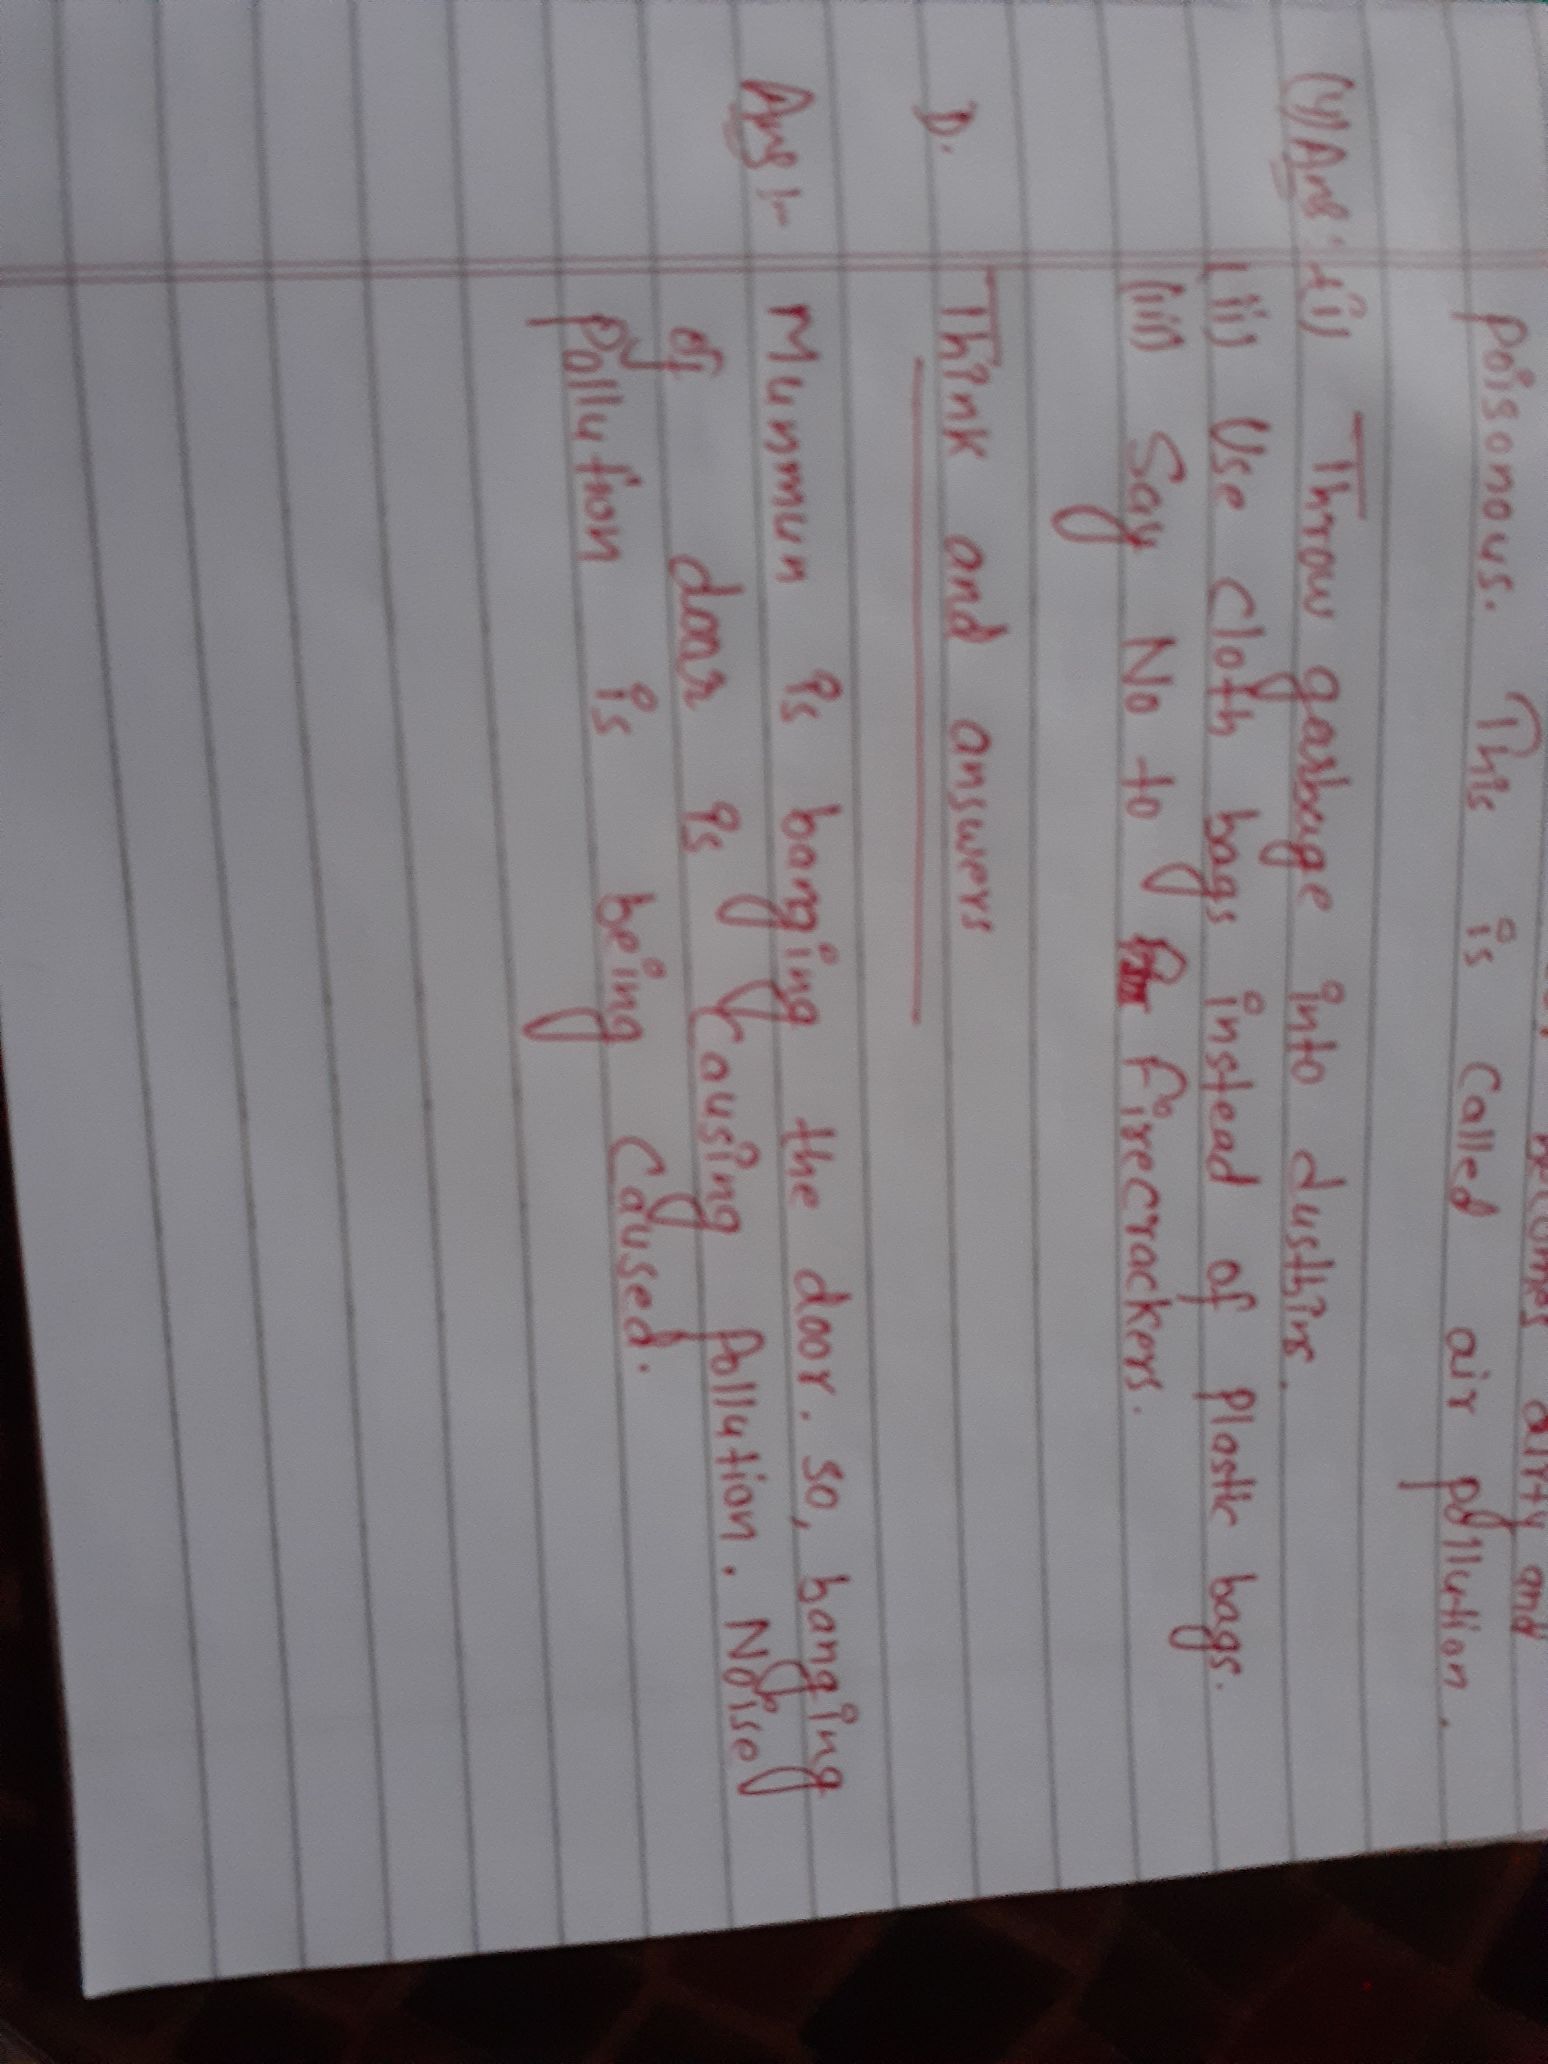 becomes dirty and
poisonous. This is called air pollution.
(4) Ans:- (i) Throw garbage into dustbins.
(ii) Use cloth bags instead of plastic bags.
(iii) Say No to Firecrackers.
D. Think and answers
Ans:- Munmun is banging the door. so, banging
of door is causing pollution. Noise
pollution is being caused.